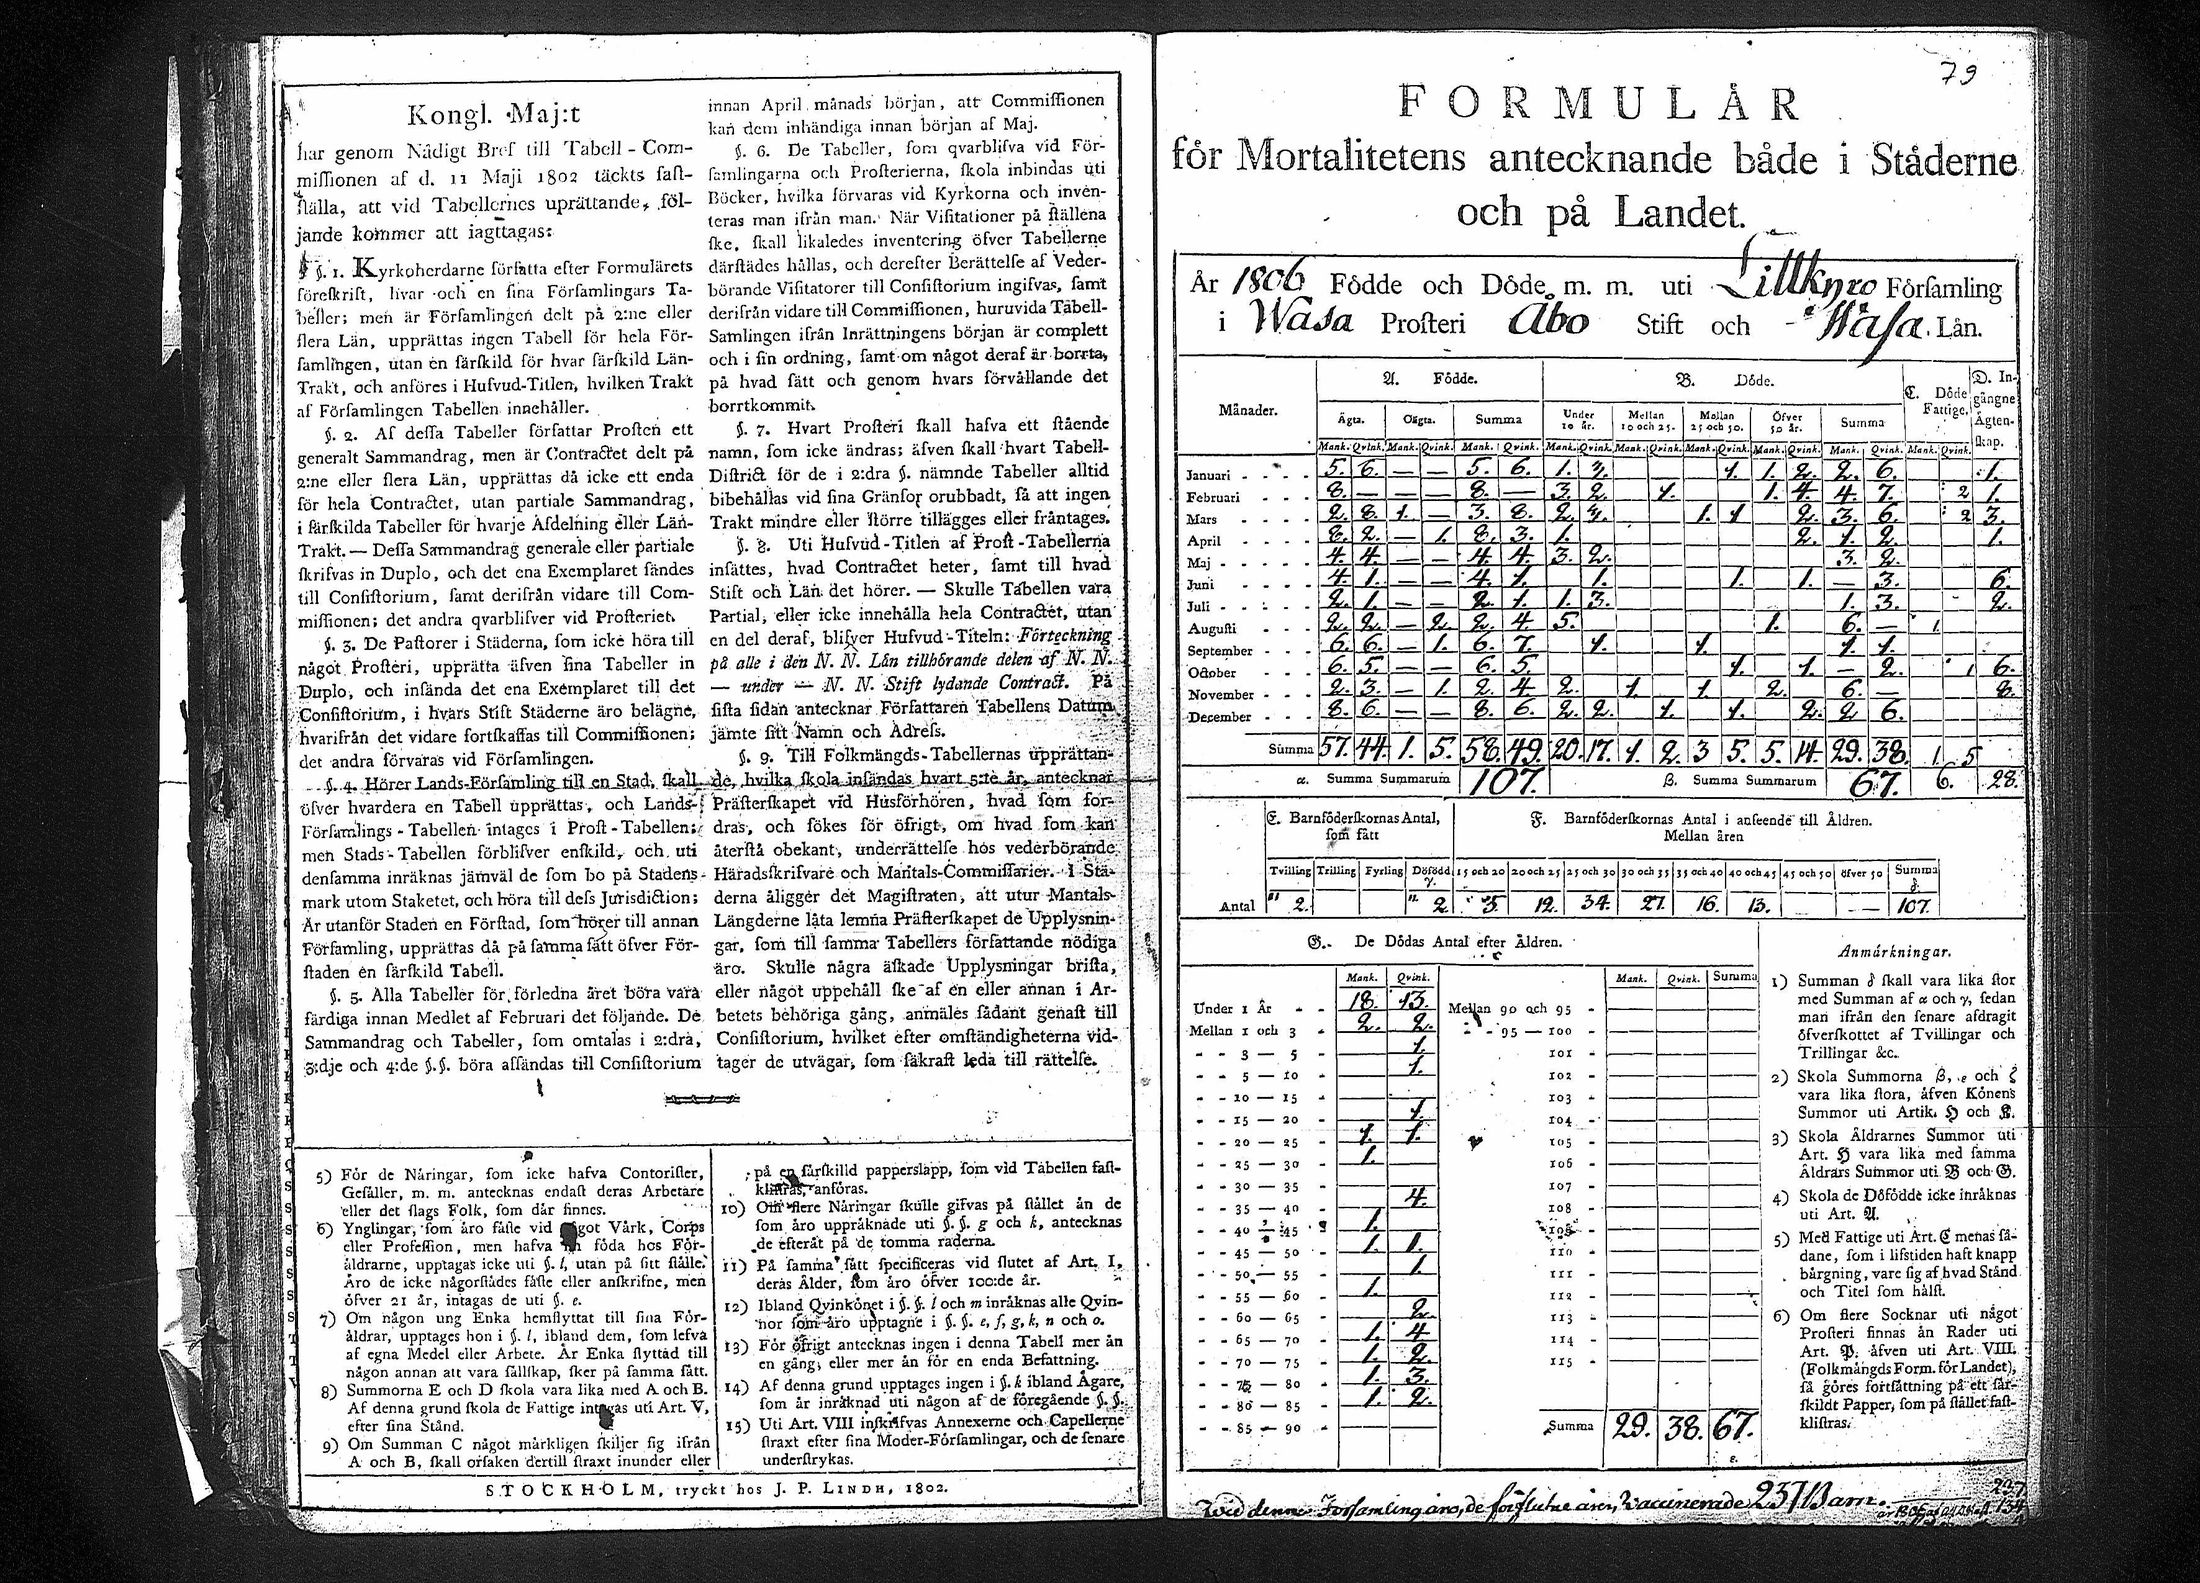 Kongl. Maj:t
har genom Nådigt Bref till Tabell-Com-
miſſionen af d. 11 Maji 1802 täckts faſt-
ſtälla, att vid Tabellernes uprättande, föl-
jande kommer att iagttagas:
§. 1. Kyrkoherdarne författa efter Formulärets
föreſkrift, hvar och en ſina Förſamlingars Ta-
beller; men är Förſamlingen delt på 2:ne eller
flera Län, upprättas ingen Tabell för hela För-
ſamlingen, utan en färſkild för hvar färſkild Län-
Trakt, och anföres i Hufvud-Titlen, hvilken Trakt
af Förſamlingen Tabellen innehåller.
§. 2. Af deſſa Tabeller författar Proſten ett
generalt Sammandrag, men är Contractet delt på
2:ne eller flera Län, upprättas då icke ett enda
för hela Contractet, utan partiale Sammandrag,
i färſkilda Tabeller för hvarje Afdelning eller Län-
Trakt. — Deſſa Sammandrag generale eller partiale
ſkrifvas in Duplo, och det ena Exemplaret ſändes
till Conſiſtorium, ſamt derifrån vidare till Com-
miſſionen; det andra qvarblifver vid Proſteriet.
§. 3. De Paſtorer i Städerna, ſom icke höra till
något Proſteri, upprätta äfven ſina Tabeller in
Duplo, och inſända det ena Exemplaret till det
Conſiſtorium, i hvars Stift Städerne äro belägne,
hvarifrån det vidare fortſkaffas till Commiſſionen;
det andra förvaras vid Förſamlingen.
§. 4. Hörer Lands-Förſamling till en Stad, ſkall
öfver hvardera en Tabell upprättas, och Lands-
Förſamlings-Tabellen intages i Proſt-Tabellen;
men Stads-Tabellen förblifver enſkild, och uti
denſamma inräknas jämväl de ſom bo på Stadens
mark utom Staketet, och höra till deſs Jurisdiction;
Är utanför Staden en Förſtad, ſom hörer till annan
Förſamling, upprättas då på ſamma ſätt öfver För-
ſtaden en färſkild Tabell.
§. 5. Alla Tabeller för förledna året böra vara
färdiga innan Medlet af Februari det följande. De
Sammandrag och Tabeller, ſom omtalas i 2:dra,
3:dje och 4:de §.§. böra afſändas till Conſiſtorium
innan April månads början, att Commiſſionen
kan dem inhändiga innan början af Maj.
§. 6. De Tabeller, ſom qvarblifva vid För-
ſamlingarna och Proſterierna, ſkola inbindas uti
Böcker, hvilka förvaras vid Kyrkorna och inven-
teras man ifrån man. När Viſitationer på ſtällena
ſke, ſkall likaledes inventering öfver Tabellerne
därſtädes hållas, och derefter Berättelſe af Veder-
börande Viſitatorer till Conſiſtorium ingifvas, ſamt
derifrån vidare till Commiſſionen, huruvida Tabell-
Samlingen ifrån Inrättningens början är complett
och i ſin ordning, ſamt om något deraf är borrta,
på hvad ſätt och genom hvars förvållande det
borrtkommit.
§. 7. Hvart Proſteri ſkall hafva ett ſtående
namn, ſom icke ändras; äfven ſkall hvart Tabell-
Diſtrict för de i 2:dra §. nämnde Tabeller alltid
bibehållas vid ſina Gränſor orubbadt, ſå att ingen
Trakt mindre eller ſtörre tillägges eller fråntages.
§. 8. Uti Hufvud-Titlen af Proſt-Tabellerna
inſättes, hvad Contractet heter, ſamt till hvad
Stift och Län det hörer. — Skulle Tabellen vara
Partial, eller icke innehålla hela Contractet, utan
en del deraf, blifver Hufvud-Titeln: Förteckning
på alle i den N. N. Län tillhörande delen af N. N.
— under — N. N. Stift lydande Contract. På
ſiſta ſidan antecknar Författaren Tabellens Datum,
jämte ſitt Namn och Adreſs.
§. 9. Till Folkmängds-Tabellernas upprättan-
de, hvilka ſkola inſändas hvart 5:te år, antecknar
Präſterſkapet vid Husförhören, hvad ſom for-
dras, och ſökes för öfrigt, om hvad ſom kan
återſtå obekant, underrättelſe hos vederbörande
Häradsſkrifvare och Mantals-Commiſſarier. I Stä-
derna åligger det Magiſtraten, att utur Mantals-
Längderne låta lemna Präſterſkapet de Upplysnin-
gar, ſom till ſamma Tabellers författande nödiga
äro. Skulle några äſkade Upplysningar briſta,
eller något uppehåll ſke af en eller annan i Ar-
betets behöriga gång, anmäles ſådant genaſt till
Conſiſtorium, hvilket efter omſtändigheterna vid-
tager de utvägar, ſom ſäkraſt leda till rättelſe.
5) För de Näringar, ſom icke hafva Contoriſter,
Geſäller, m. m. antecknas endaſt deras Arbetare
eller det ſlags Folk, ſom där finnes.
6) Ynglingar, ſom äro fäſte vid något Värk, Corps
eller Profeſſion, men hafva ſin föda hos För-
äldrarne, upptagas icke uti §. l, utan på ſitt ſtälle.
Äro de icke någorſtädes fäſte eller anſkrifne, men
öfver 21 år, intagas de uti §. e.
7) Om någon ung Enka hemflyttat till ſina För-
äldrar, upptages hon i §. l, ibland dem, ſom lefva
af egna Medel eller Arbete. Är Enka flyttad till
någon annan att vara ſällſkap, ſker på ſamma ſätt.
8) Summorna E och D ſkola vara lika med A och B.
Af denna grund ſkola de Fattige intagas uti Art. V,
efter ſina Stånd.
9) Om Summan C något märkligen ſkiljer ſig ifrån
A och B, ſkall orſaken dertill ſtraxt inunder eller
på en färſkilld papperslapp, ſom vid Tabellen faſt-
kliſtras, anföras.
10) Om flere Näringar ſkulle gifvas på ſtället än de
ſom äro uppräknade uti §. §. g och k, antecknas
de efteråt på de tomma raderna.
11) På ſamma ſätt ſpecificeras vid ſlutet af Art. I,
deras Ålder, ſom äro öfver 100:de år.
12) Ibland Qvinkönet i §. §. l och m inräknas alle Qvin-
nor ſom äro upptagne i §. §. e, f, g, k, n och o.
13) För öfrigt antecknas ingen i denna Tabell mer än
en gång, eller mer än för en enda Befattning.
14) Af denna grund upptages ingen i §. k ibland Ägare,
ſom är inräknad uti någon af de föregående §. §.
15) Uti Art. VIII inſkrifvas Annexerne och Capellerne
ſtraxt efter ſina Moder-Förſamlingar, och de ſenare
underſtrykas.
STOCKHOLM, tryckt hos J. P. LINDH, 1802.
79
FORMULÄR
för Mortalitetens antecknande både i Städerne
och på Landet.
År 1806 Födde och Döde m. m. uti Lillkyro Förſamling
i Wasa Proſteri Åbo Stift och Wasa Län.
Månader. A. Födde. B. Döde. C. Döde Fattige. D. Ingångne Ägtenſkap.
Ägta. Oägta. Summa Under 10 år. Mellan 10 och 25. Mellan 25 och 50. Öfver 50 år. Summa
Mank. Qvink. Mank. Qvink. Mank. Qvink. Mank. Qvink. Mank. Qvink. Mank. Qvink. Mank. Qvink. Mank. Qvink. Mank. Qvink.
Januari 5. 6. — — 5. 6. 1. 3. 1. 1. 2. 2. 6. 1.
Februari 8. — — — 8. — 3. 2. 1. 1. 4. 4. 7. 2 1.
Mars 2. 8. 1. — 3. 8. 2. 3. 1. 1 2. 3. 6. 2 3.
April 8. 2. — 1. 8. 3. 1. 2. 1. 2. 1.
Maj 4. 4. — — 4. 4. 3. 2. 3. 2.
Juni 4. 1. — — 4. 1. 1. 1. 1. — 3. 6.
Juli 2. 1. — — 2. 1. 1. 3. 1. 3. 2.
Auguſti 2. 2. — 2. 2. 4. 5. 1. 6. — 1.
September 6. 6. — 1. 6. 7. 1. 1. 1. 1.
October 6. 5. — — 6. 5. 1. 1. — 2. 1 6.
November 2. 3. — 1. 2. 4. 2. 1. 1. 2. 6. — 8.
December 8. 6. — — 8. 6. 2. 2. 1. 1. 2. 2 6.
Summa 57. 44. 1. 5. 58. 49. 20. 17. 1. 2. 3 5. 5. 14. 29. 38. 1. 5
α. Summa Summarum 107. β. Summa Summarum 67. 6. 28.
E. Barnföderſkornas Antal, ſom fått
F. Barnföderſkornas Antal i anſeende till Åldren.
Mellan åren
Tvilling Trilling Fyrling Döfödd γ. 15 och 20 20 och 25 25 och 30 30 och 35 35 och 40 40 och 45 45 och 50 öfver 50 Summa δ.
Antal 2. 2. 5. 12. 34. 27. 16. 13. — — 107.
G. De Dödas Antal efter Åldren.
Mank. Qvink. Mank. Qvink. Summa
Under 1 År 18. 13. Mellan 90 och 95
Mellan 1 och 3 2. 2. 95 — 100
3 — 5 1. 101
5 — 10 1. 102
10 — 15 103
15 — 20 1. 104
20 — 25 1. 1. 105
25 — 30 1. 106
30 — 35 107
35 — 40 4. 108
40 — 45 1. 109
45 — 50 1. 1. 110
50 — 55 1. 111
55 — 60 1. 112
60 — 65 2. 113
65 — 70 1. 4 114
70 — 75 1. 2. 115
75 — 80 1. 3.
80 — 85 1. 2.
85 — 90 Summa 29. 38. 67.
ε.
Anmärkningar.
1) Summan δ ſkall vara lika ſtor
med Summan af α och γ, ſedan
man ifrån den ſenare afdragit
öfverſkottet af Tvillingar och
Trillingar &c.
2) Skola Summorna β, ε och ζ
vara lika ſtora, äfven Könens
Summor uti Artik. H och K.
3) Skola Åldrarnes Summor uti
Art. H vara lika med ſamma
Åldrars Summor uti B och G.
4) Skola de Döfödde icke inräknas
uti Art. A.
5) Med Fattige uti Art. C menas ſå-
dane, ſom i lifstiden haft knapp
bärgning, vare ſig af hvad Stånd
och Titel ſom hälſt.
6) Om flere Socknar uti något
Proſteri finnas än Rader uti
Art. P. äfven uti Art. VIII.
(Folkmängds Form. för Landet),
ſå göres fortſättning på ett ſär-
ſkildt Papper, ſom på ſtället faſt-
kliſtras.
Wid denne Forſamling äro, de förflutne åren, Vaccinerade 237 Barn.
237
134